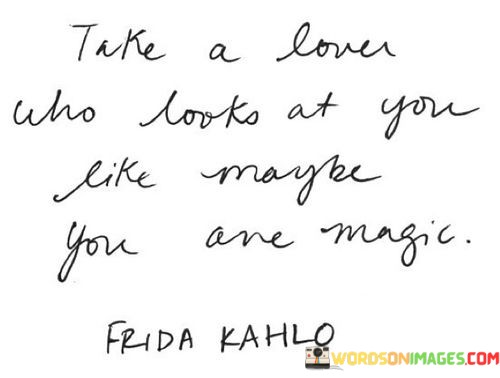 Take a lover
who looks at you
like maybe
you are magic.
FRIDA KAHLO
WORDSONIMAGES.COM